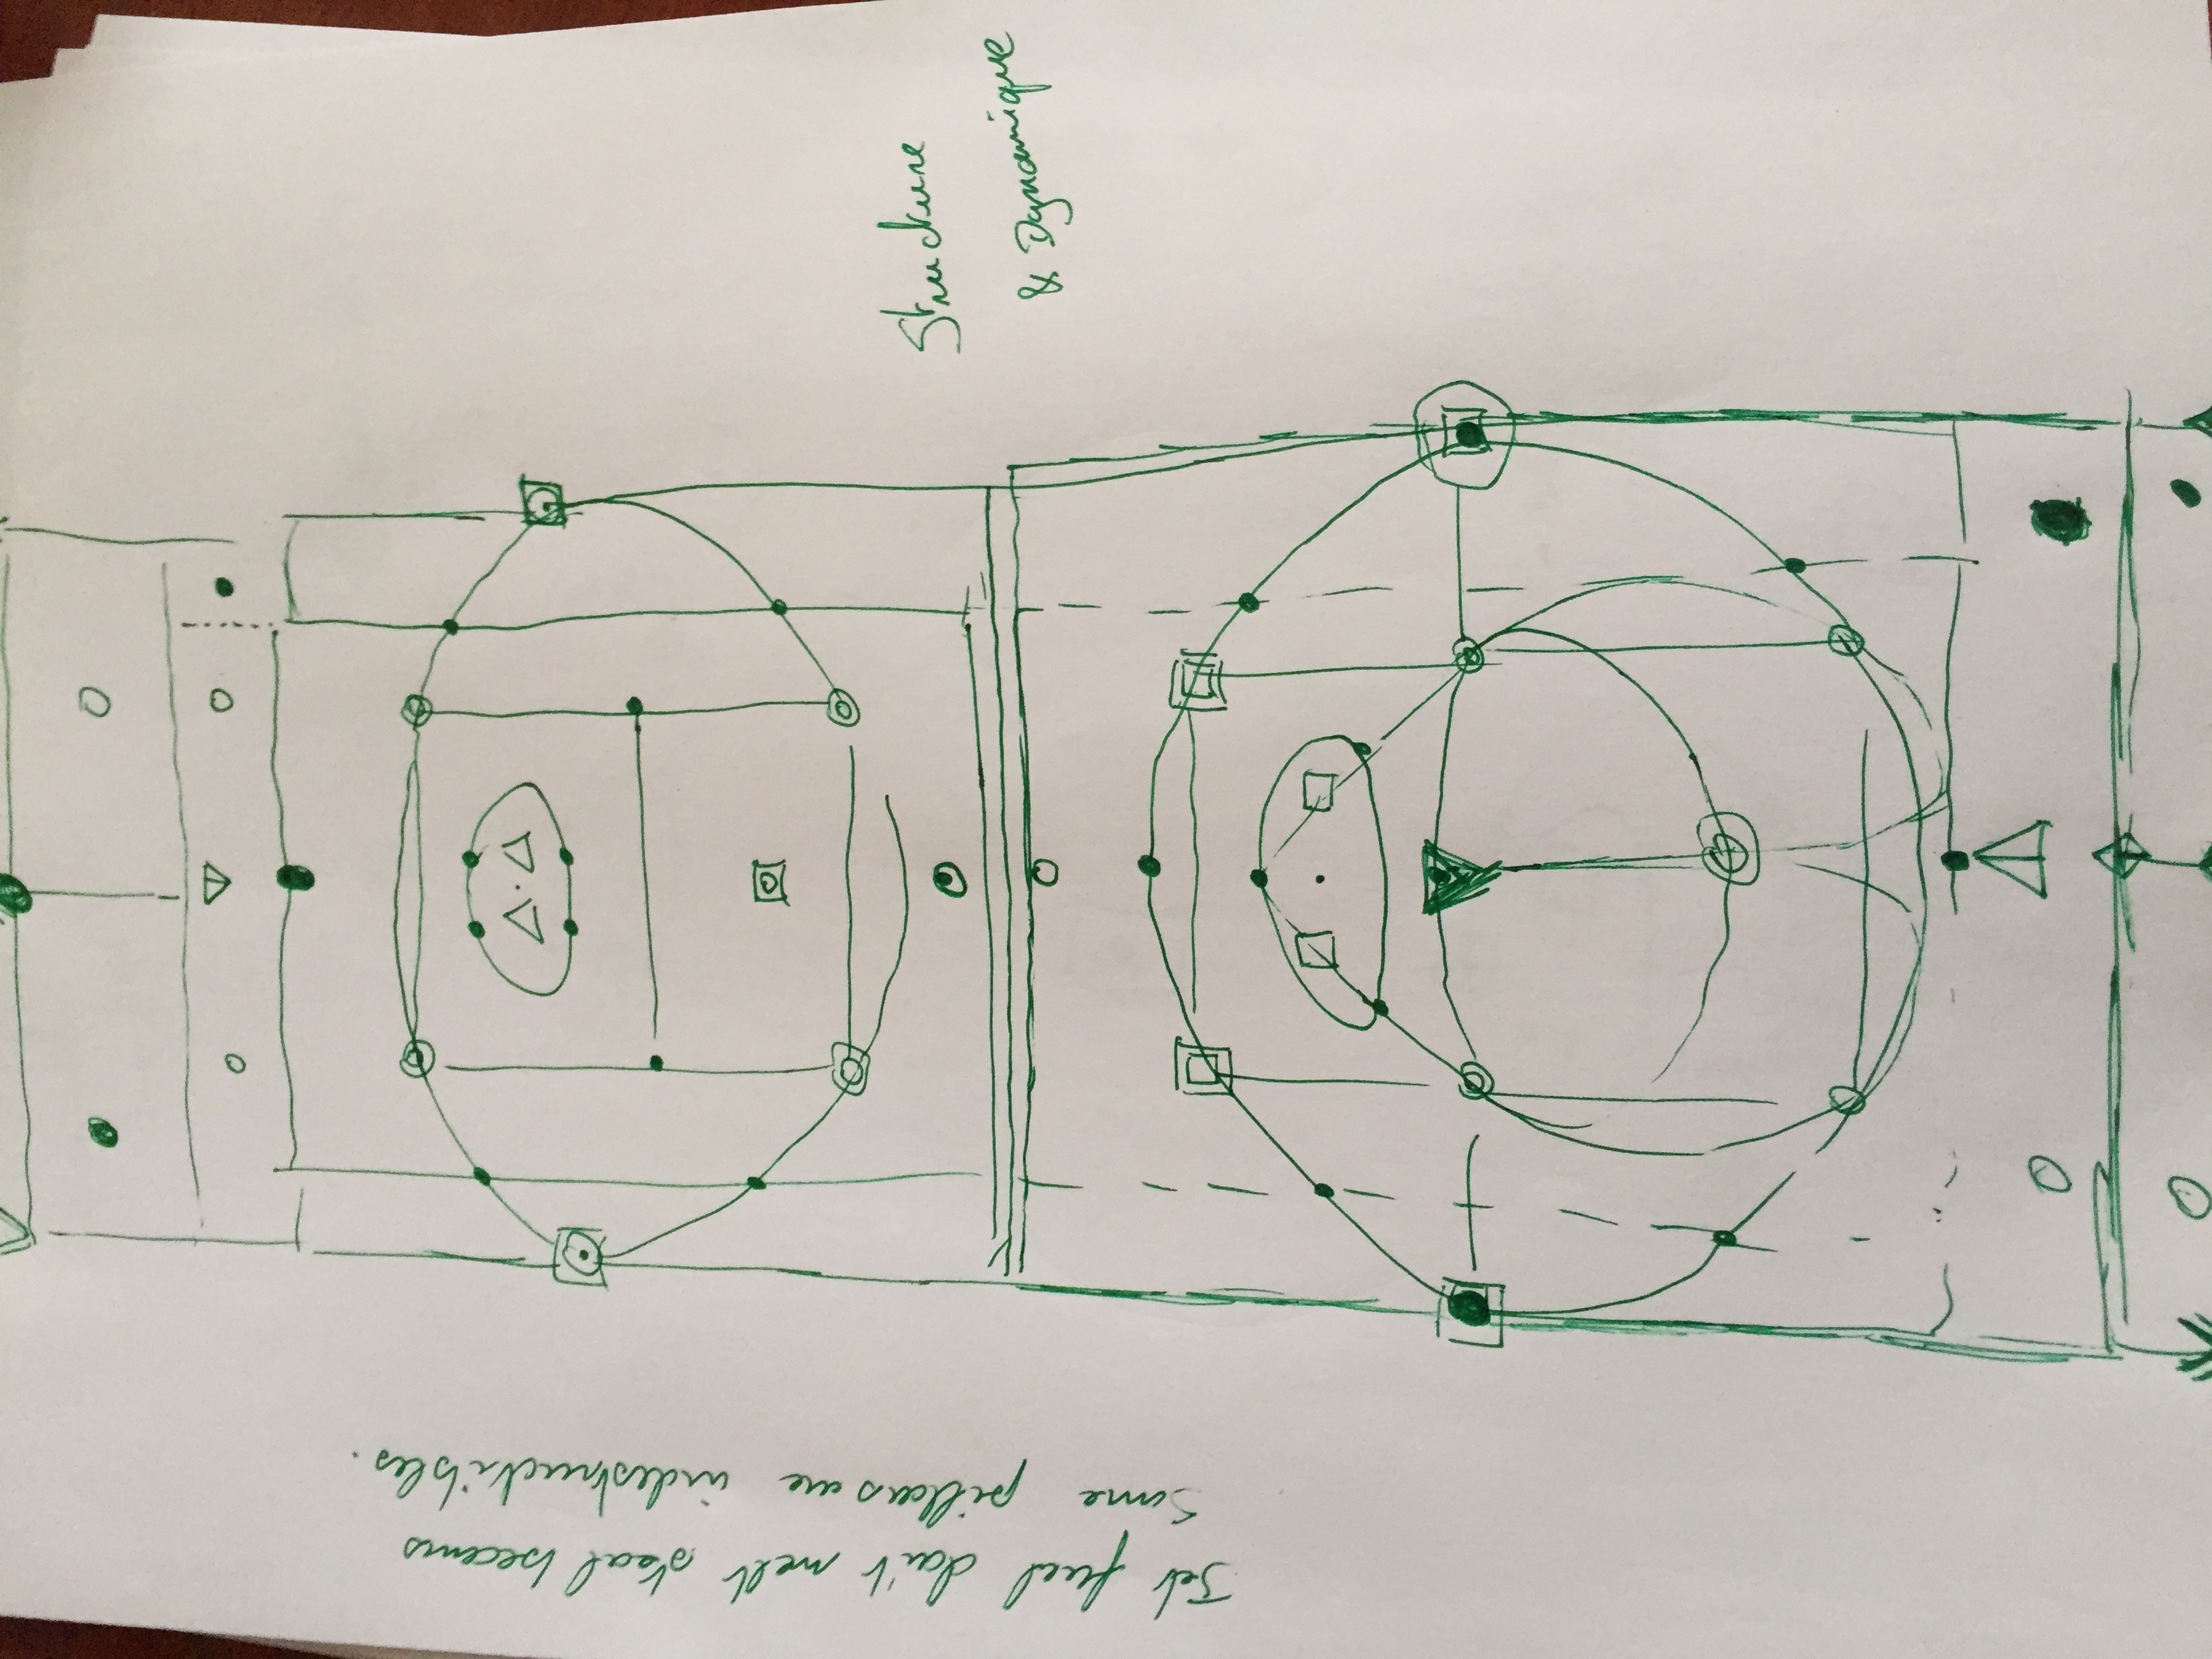 Jet fuel don't melt steal beams
Some pillars are indestructibles.
Structure
& Dynamique